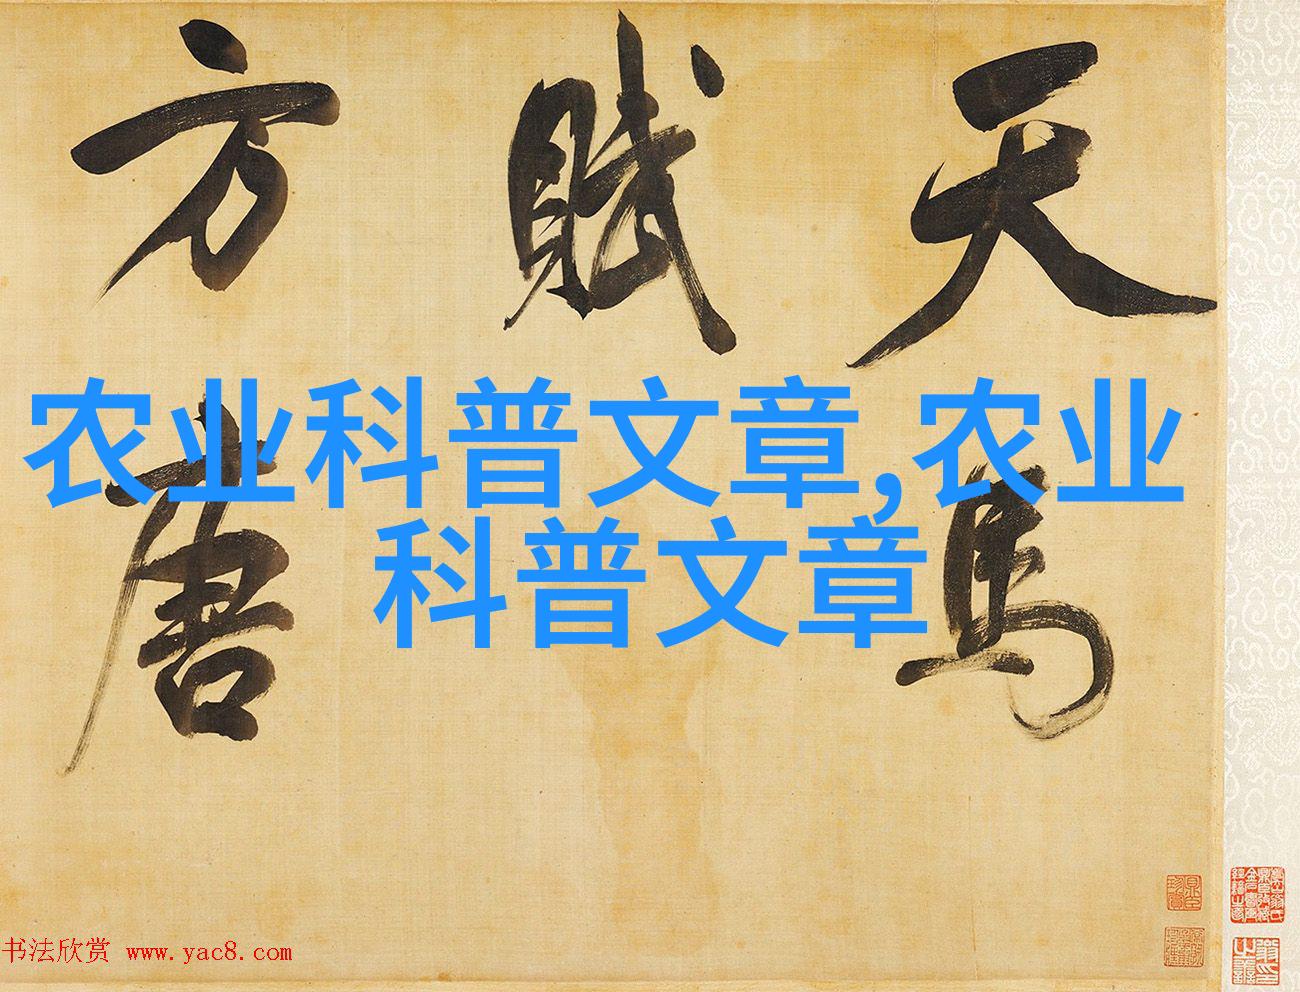 天馬
賦
方唐
农业科普文章,农业
科普文章
书法欣赏 www.yac8.com